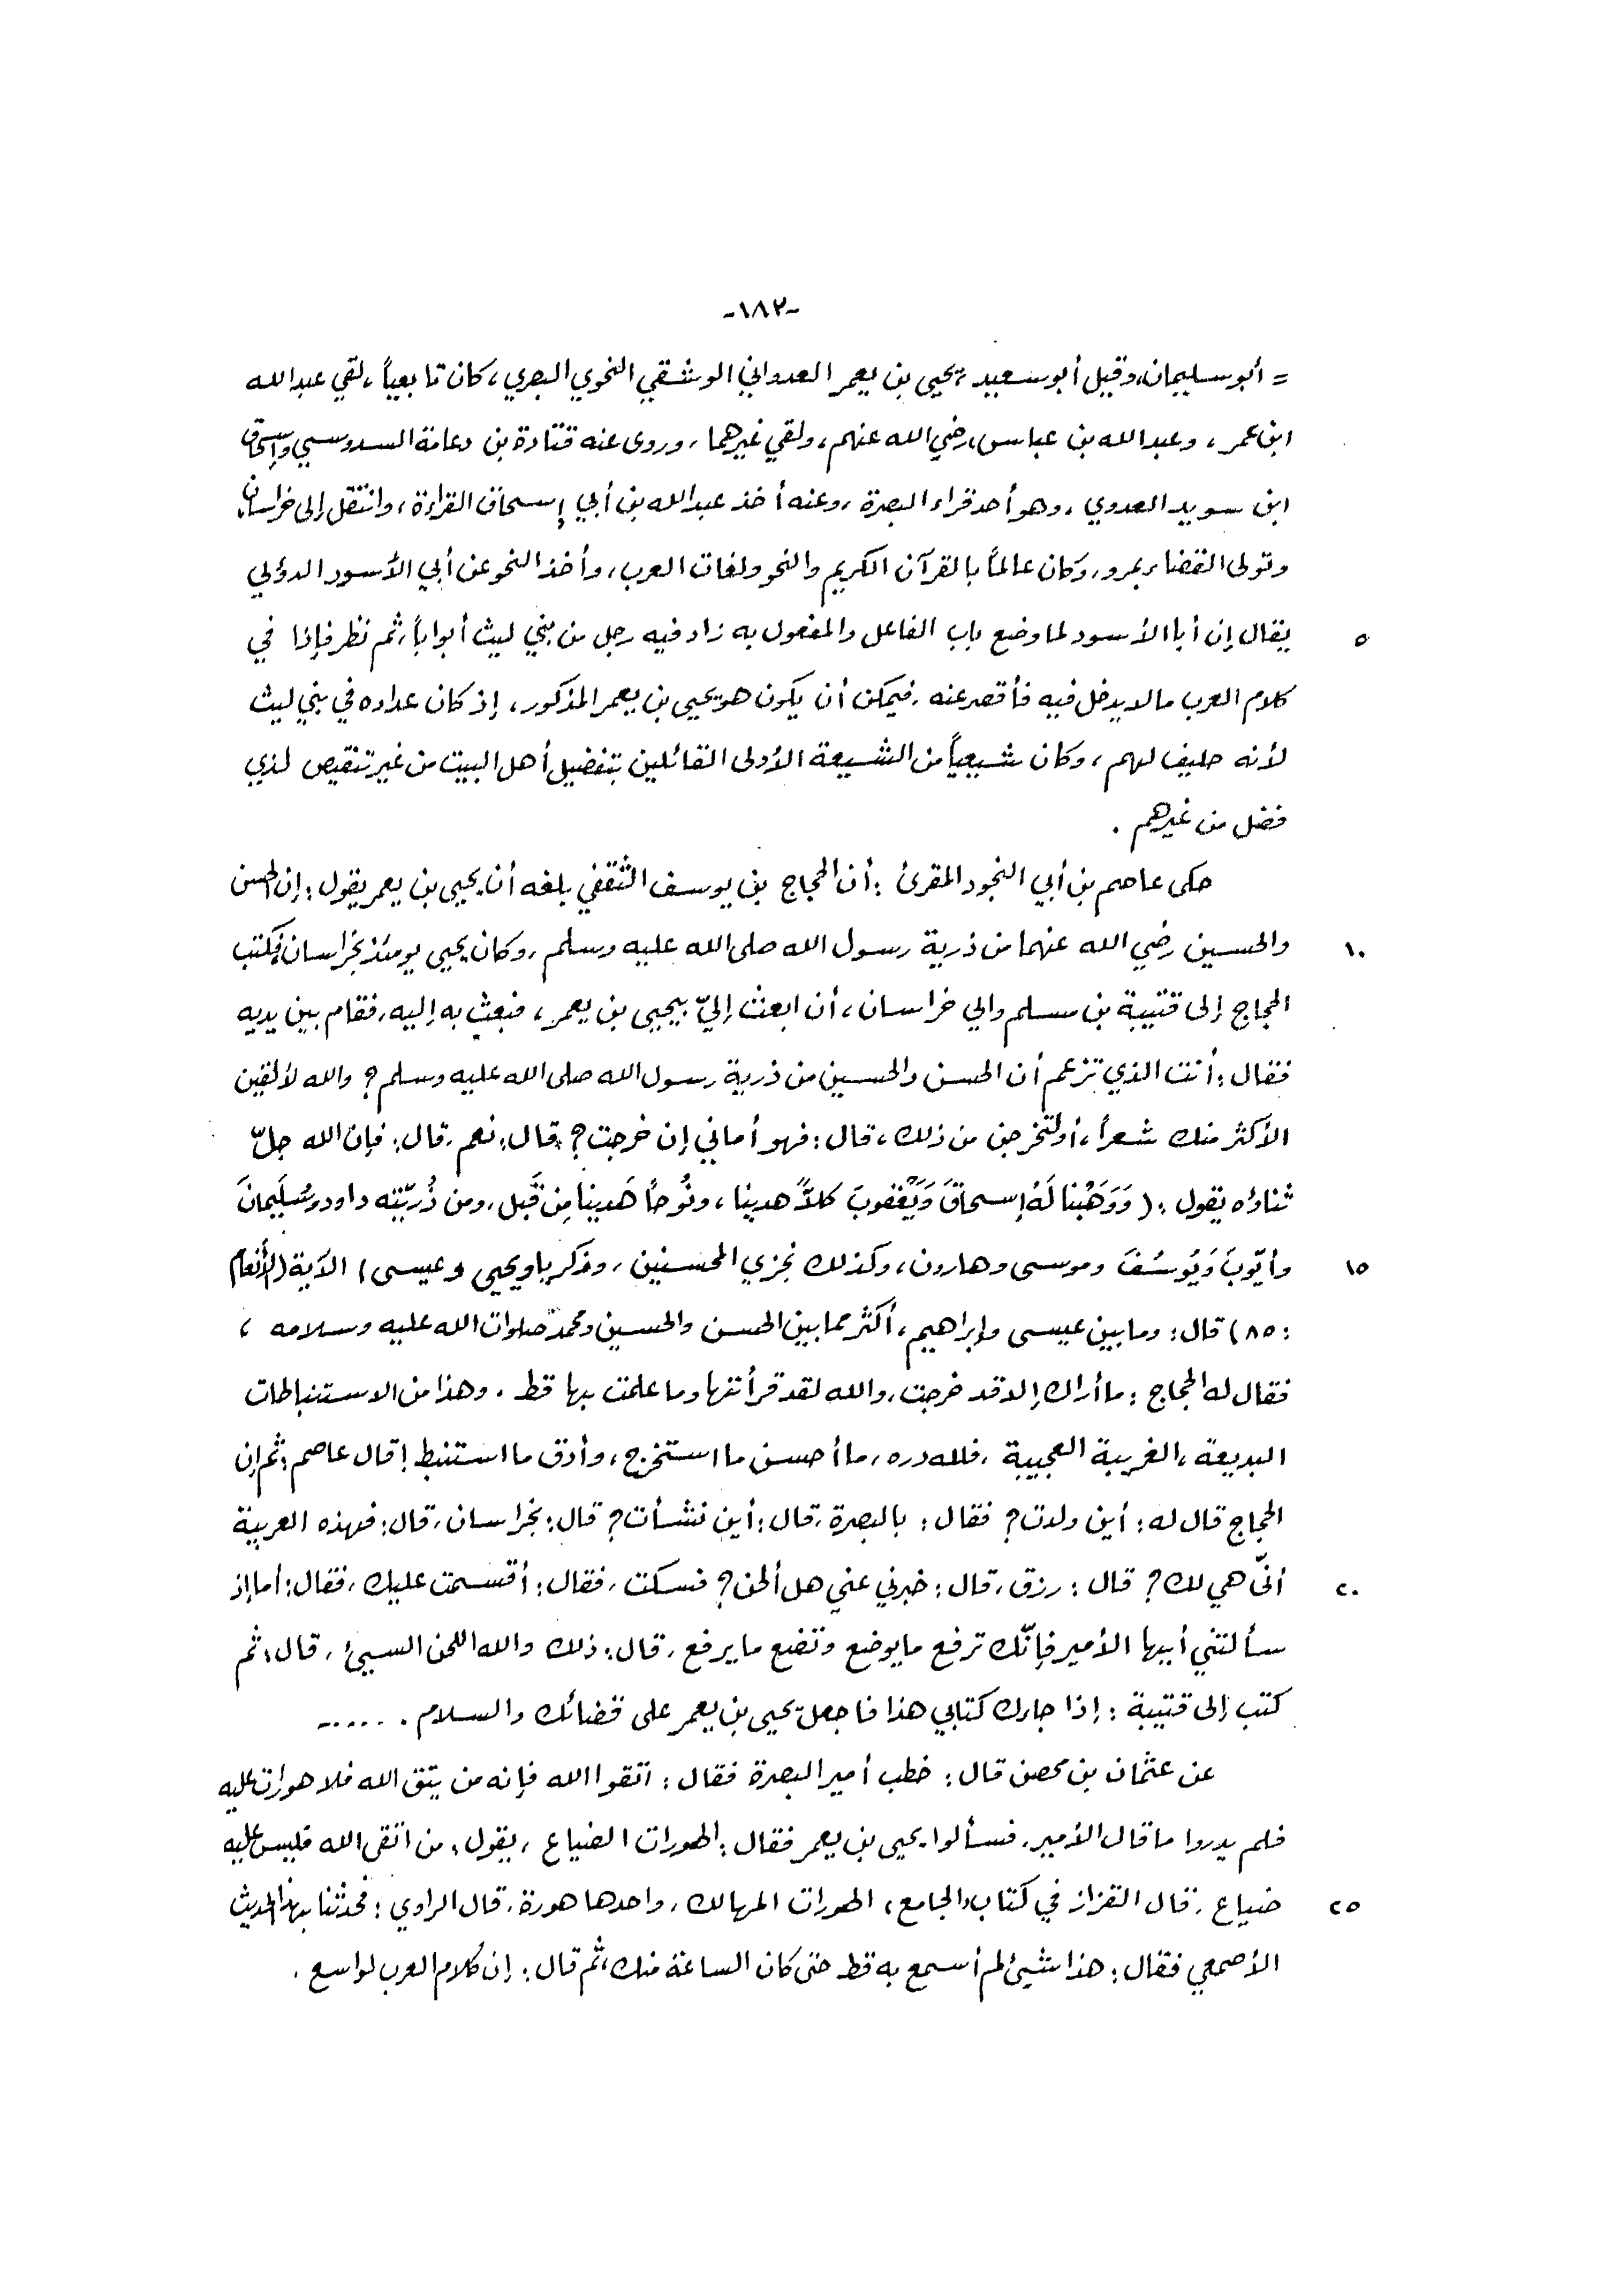 -١٨٢-
= أبو سليمان، وقيل أبو سعيد، يحيى بن يعمر العدواني الوشقي النحوي البصري، كان تابعياً، لقي عبد الله
ابن عمر، وعبد الله بن عباس، رضي الله عنهم، ولقي غيرهما، وروى عنه قتادة بن دعامة السدوسي وإسحاق
ابن سويد العدوي، وهو أحد قراء البصرة، وعنه أخذ عبد الله بن أبي إسحاق القراءة، وانتقل إلى خراسان،
وتولى القضاء بمرو، وكان عالماً بالقرآن الكريم والنحو ولغات العرب، وأخذ النحو عن أبي الأسود الدؤلي
يقال إن أبا الأسود لما وضع باب الفاعل والمفعول به زاد فيه رجل من بني ليث أبواباً، ثم نظر فإذا في ٥
كلام العرب ما لا يدخل فيه فأقصر عنه، فيمكن أن يكون هو يحيى بن يعمر المذكور، إذ كان عداده في بني ليث
لأنه حليف لهم، وكان شيعياً من الشيعة الأولى القائلين بتفضيل أهل البيت من غير تنقيص لذي
فضل من غيرهم .
حكى عاصم بن أبي النجود المقرئ : أن الحجاج بن يوسف الثقفي بلغه أن يحيى بن يعمر يقول : إن الحسن
والحسين رضي الله عنهما من ذرية رسول الله صلى الله عليه وسلم، وكان يحيى يومئذ بخراسان، فكتب ١٠
الحجاج إلى قتيبة بن مسلم والي خراسان، أن ابعث إليّ بيحيى بن يعمر، فبعث به إليه، فقام بين يديه
فقال : أنت الذي تزعم أن الحسن والحسين من ذرية رسول الله صلى الله عليه وسلم ؟ والله لألقين
الأكثر منك شعراً، أو لتخرجن من ذلك، قال : فهو أماني إن خرجت ؟ قال : نعم، قال : فإن الله جلّ
ثناؤه يقول : ( وَوَهَبْنا لَهُ إسحاقَ وَيَعْقوبَ كلاً هدينا، ونُوحاً هَدينا مِن قَبل، ومن ذُرّيّته داود وسُلَيمانَ
وأيّوبَ وَيُوسُفَ وموسى وهارون، وكذلك نجزي المحسنين، وزكريا ويحيى وعيسى ) الآية ( الأنعام ١٥
: ٨٥ ) قال : وما بين عيسى وإبراهيم، أكثر مما بين الحسن والحسين ومحمد صلوات الله عليه وسلامه ،
فقال له الحجاج : ما أراك إلا قد خرجت، والله لقد قرأتها وما علمت بها قط . وهذا من الاستنباطات
البديعة، الغريبة العجيبة، فلله دره، ما أحسن ما استخرج، وأدق ما استنبط ! قال عاصم : ثم إن
الحجاج قال له : أين ولدت ؟ فقال : بالبصرة، قال : أين نشأت ؟ قال : بخراسان، قال : فهذه العربية
أنّى هي لك ؟ قال : رزق، قال : خبرني عني هل ألحن ؟ فسكت، فقال : أقسمت عليك، فقال : أما إذ ٢٠
سألتني أيها الأمير فإنّك ترفع ما يوضع وتضع ما يرفع، قال : ذلك والله اللحن السيئ، قال : ثم
كتب إلى قتيبة : إذا جاءك كتابي هذا فاجعل يحيى بن يعمر على قضائك والسلام . .....
عن عثمان بن محصن قال : خطب أمير البصرة فقال : اتقوا الله فإنه من يتق الله فلا هوارت عليه
فلم يدروا ما قال الأمير، فسألوا يحيى بن يعمر فقال : الهورات الضياع، يقول : من اتقى الله فليس عليه
ضياع، قال القزاز في كتاب الجامع، الهورات المهالك، واحدها هورة، قال الراوي : فحدثنا بهذا الحديث ٢٥
الأصمعي فقال : هذا شيئ لم أسمع به قط حتى كان الساعة منك، ثم قال : إن كلام العرب لواسع .